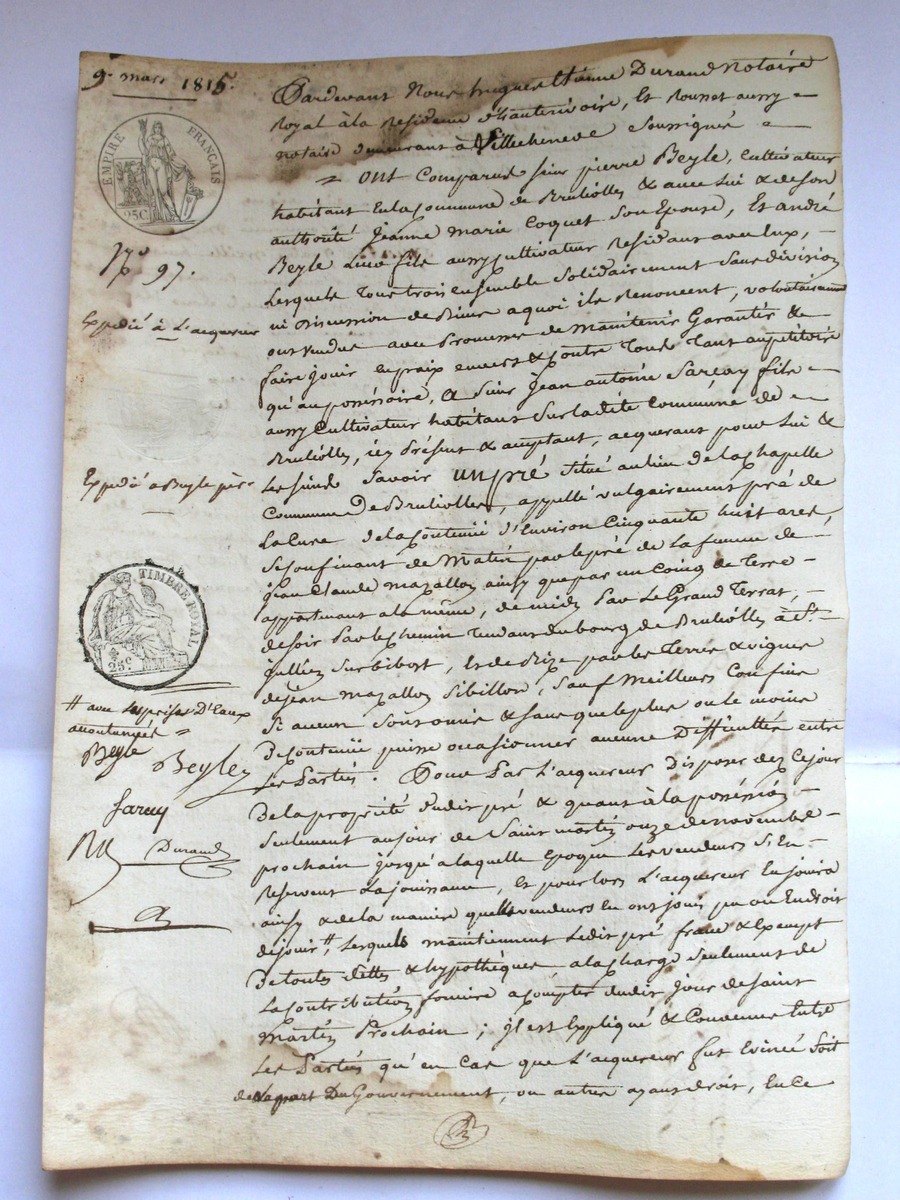 9. mars 1815.
EMPIRE FRANÇAIS
25C
N.o 97.
Expedié à L'acquereur
Expedié a Beyle père
TIMBRE ROYAL
25c
# avec Les prises D'Eaux
accoutumées =
Beyle Beyle
Sarcey
Durand
Pardevant Nous hugues Etienne Durand Notaire
Royal à la Residence d'hauterivoire, Et Rounet aussy =
notaire demeurant à Villecheneve Soussignés =
= ONt Comparus Sieur pierre Beyle, Cultivateur
habitant En la Commune de Brulioles & avec Lui & de son
authorité Jeanne Marie Coquet Son Epouse, Et andré
Beyle Leur fils aussy Cultivateur Residant avec Eux, =
Lesquels Tous trois ensemble Solidairement Sans division
ni Discussion de Biens a quoi ils Renoncent, volontairement
ont vendus avec Promesse de Maintenir Garantir &
faire jouir en paix envers & Contre Tous Tant au petitoire
qu'au possessoire, A Sieur Jean antoine Sarcey fils =
aussy Cultivateur habitant Sur la dite Commune de =
Brulioles, icy Présent & acceptant, acquerant pour Lui &
Les siens Savoir UN PRÉ Situé au Lieu de La Chapelle
Commune De Brulioles, appellé vulgairement pré de
La Cure de la Contenue d'Environ Cinquante huit ares
Se Confinant de Matin par le pré de La femme de =
jean Claude Mazallon ainsy que par un Coing de Terre =
appartenant a la même, de midy Par Le Grand Terrat, =
de soir Par le chemin Tendant du bourg de Brulioles à St.
jullien Sur bibost, & de Bize par les Terres & vignes
de jean Mazallon Sibillon, Sauf Meilleurs Confins
Si aucun Sont omis & Sans que le plus ou le moins
De Contenue puisse occasionner aucune Difficultés entre
Les Parties. Pour Par L'acquereur Disposer dez Ce jour
De la proprieté dudit pré & quant à la possession =
Seulement au jour de Saint martin onze de novembre =
prochain jusqu'a laquelle Epoque Les vendeurs S'En =
Reservent La jouissance, Et pour Lors L'acquereur En jouira
ainsy & de la maniere que les vendeurs en ont joui pu ou En droit
de jouir #, Lesquels maintiennent Ledit pré franc & Exempt
De toutes dettes & hypothèques a la Charge Seulement de
La Contribution fonciere a Compter dudit jour de Saint
Martin Prochain ; il est Expliqué & Convenu Entre
Les Parties qu'en Cas que L'acquereur fut Evincé Soit
de La part Du Gouvernement, ou autres ayant droit, En Ce